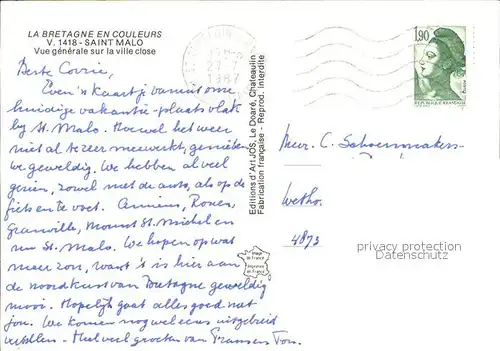 LA BRETAGNE EN COULEURS
V. 1418 - SAINT MALO
Vue générale sur la ville close
27-7
1987
1,90
REPUBLIQUE FRANÇAISE
Beste Corrie,
Even 'n kaartje vanuit onze
huidige vakantie-plaats vlak
by St. Malo. Hoewel het weer
niet al te zeer meewerkt, genieten
we geweldig. We hebben al veel
gezien, zowel met de auto, als op de
fiets en te voet. Amiens, Rouen,
Granville, Mount St. Michel en
nu St. Malo. We hopen op wat
meer zon, want 't is hier aan
de noordkust van Bretagne geweldig
mooi. Hopelijk gaat alles goed met
jou. We komen nog wel eens uitgebreid
vertellen. Heel veel groeten van Frans en Ton.
Editions d'Art JOS, Le Doaré, Chateaulin
Fabrication française - Reprod. interdite
Image
de France
Imprimée
en France
Mevr. C. Schoenmakers-
Wethr.
4873
privacy protection
Datenschutz